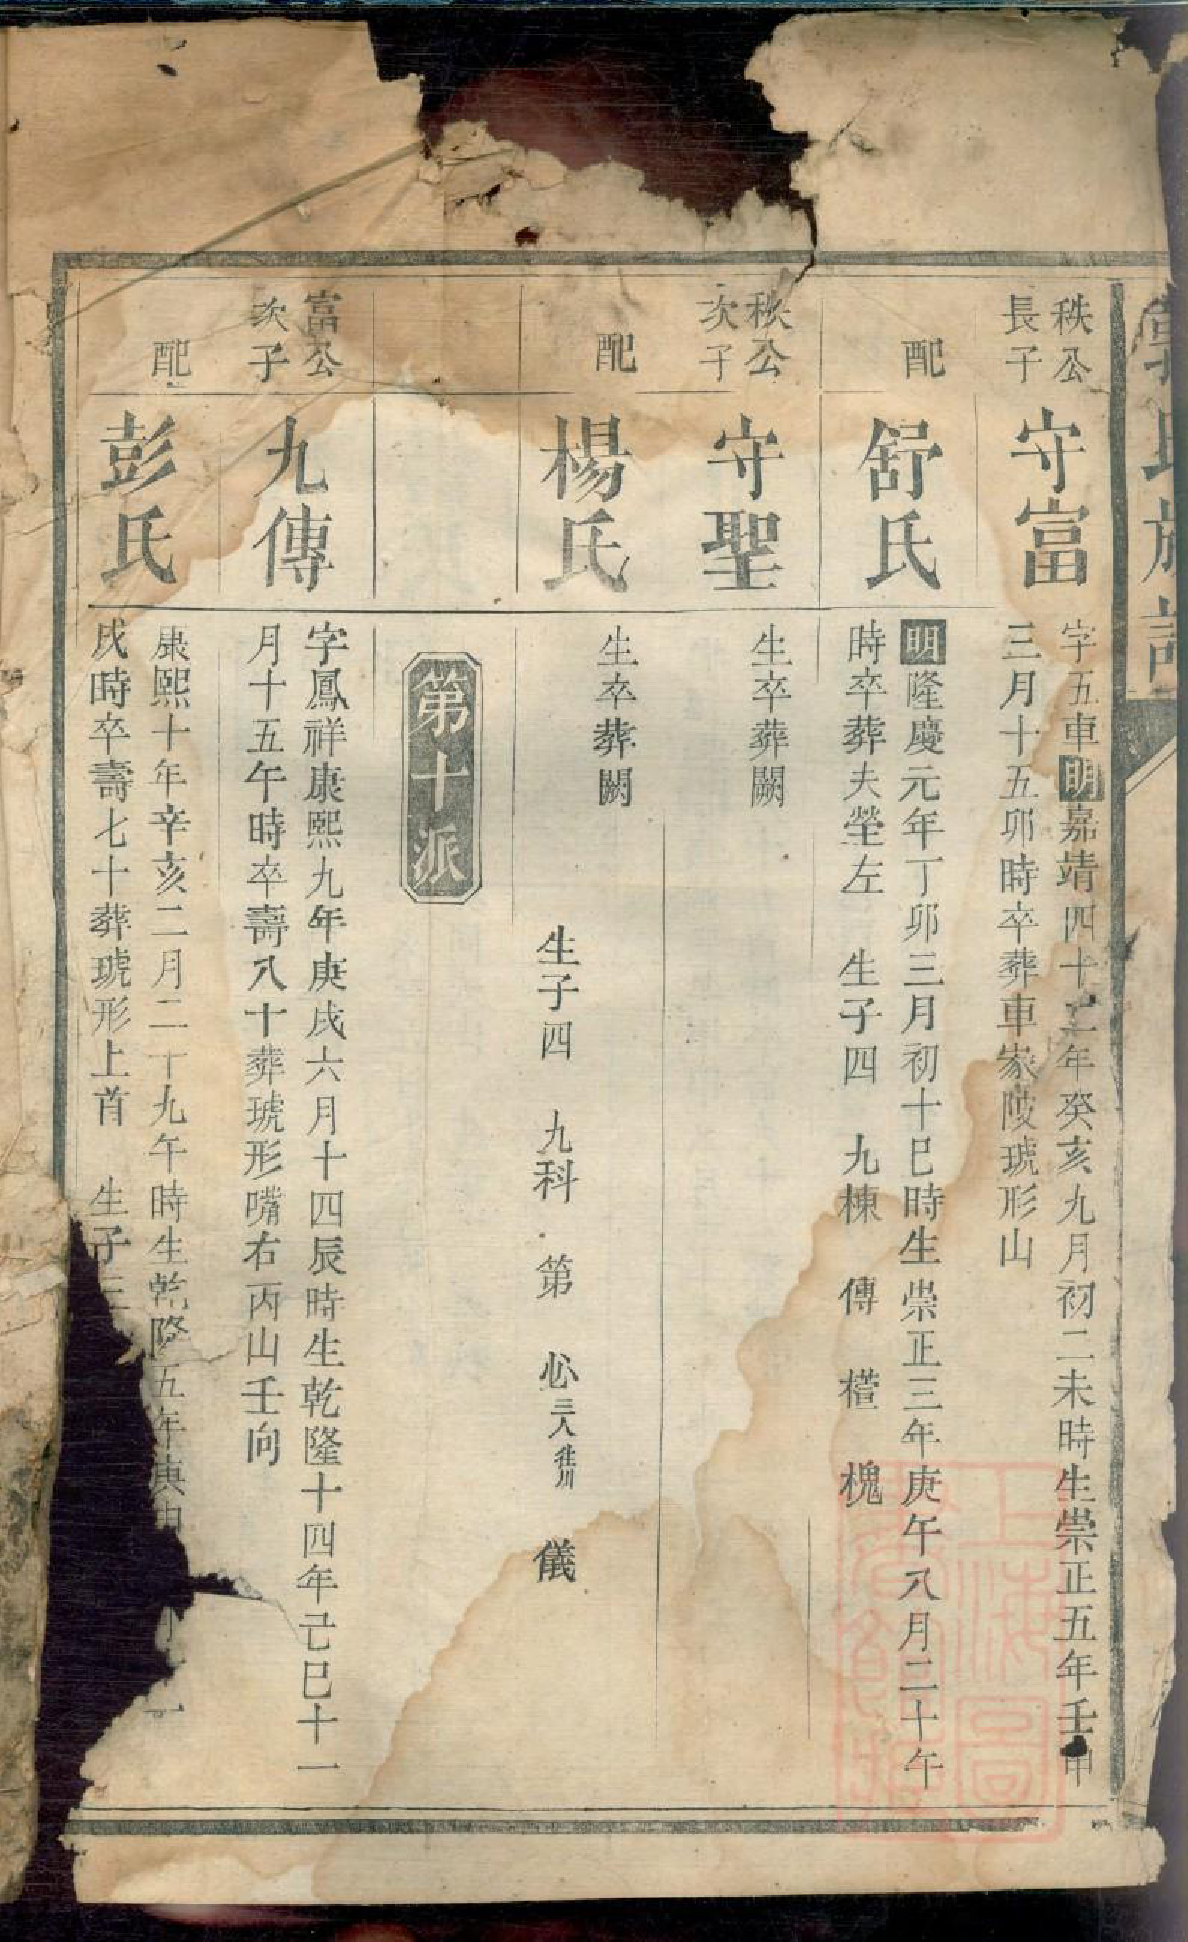 氏族
秩公
長子
守富
字五車明嘉靖四十二年癸亥九月初二未時生崇正五年壬申
三月十五卯時卒葬車家陂琥形山
配
舒氏
明隆慶元年丁卯三月初十巳時生崇正三年庚午八月二十午
時卒葬夫塋左 生子四 九棟 傳 楷 槐
秩公
次子
守聖
生卒葬闕
配
楊氏
生卒葬闕
生子四 九科 第 心三人往川 儀
第十派
富公
次子
九傳
字鳳祥康熙九年庚戌六月十四辰時生乾隆十四年己巳十一
月十五午時卒壽八十葬琥形嘴右丙山壬向
配
彭氏
康熙十年辛亥二月二十九午時生乾隆五年庚申
戌時卒壽七十葬琥形上首 生子三
上海圖書館藏